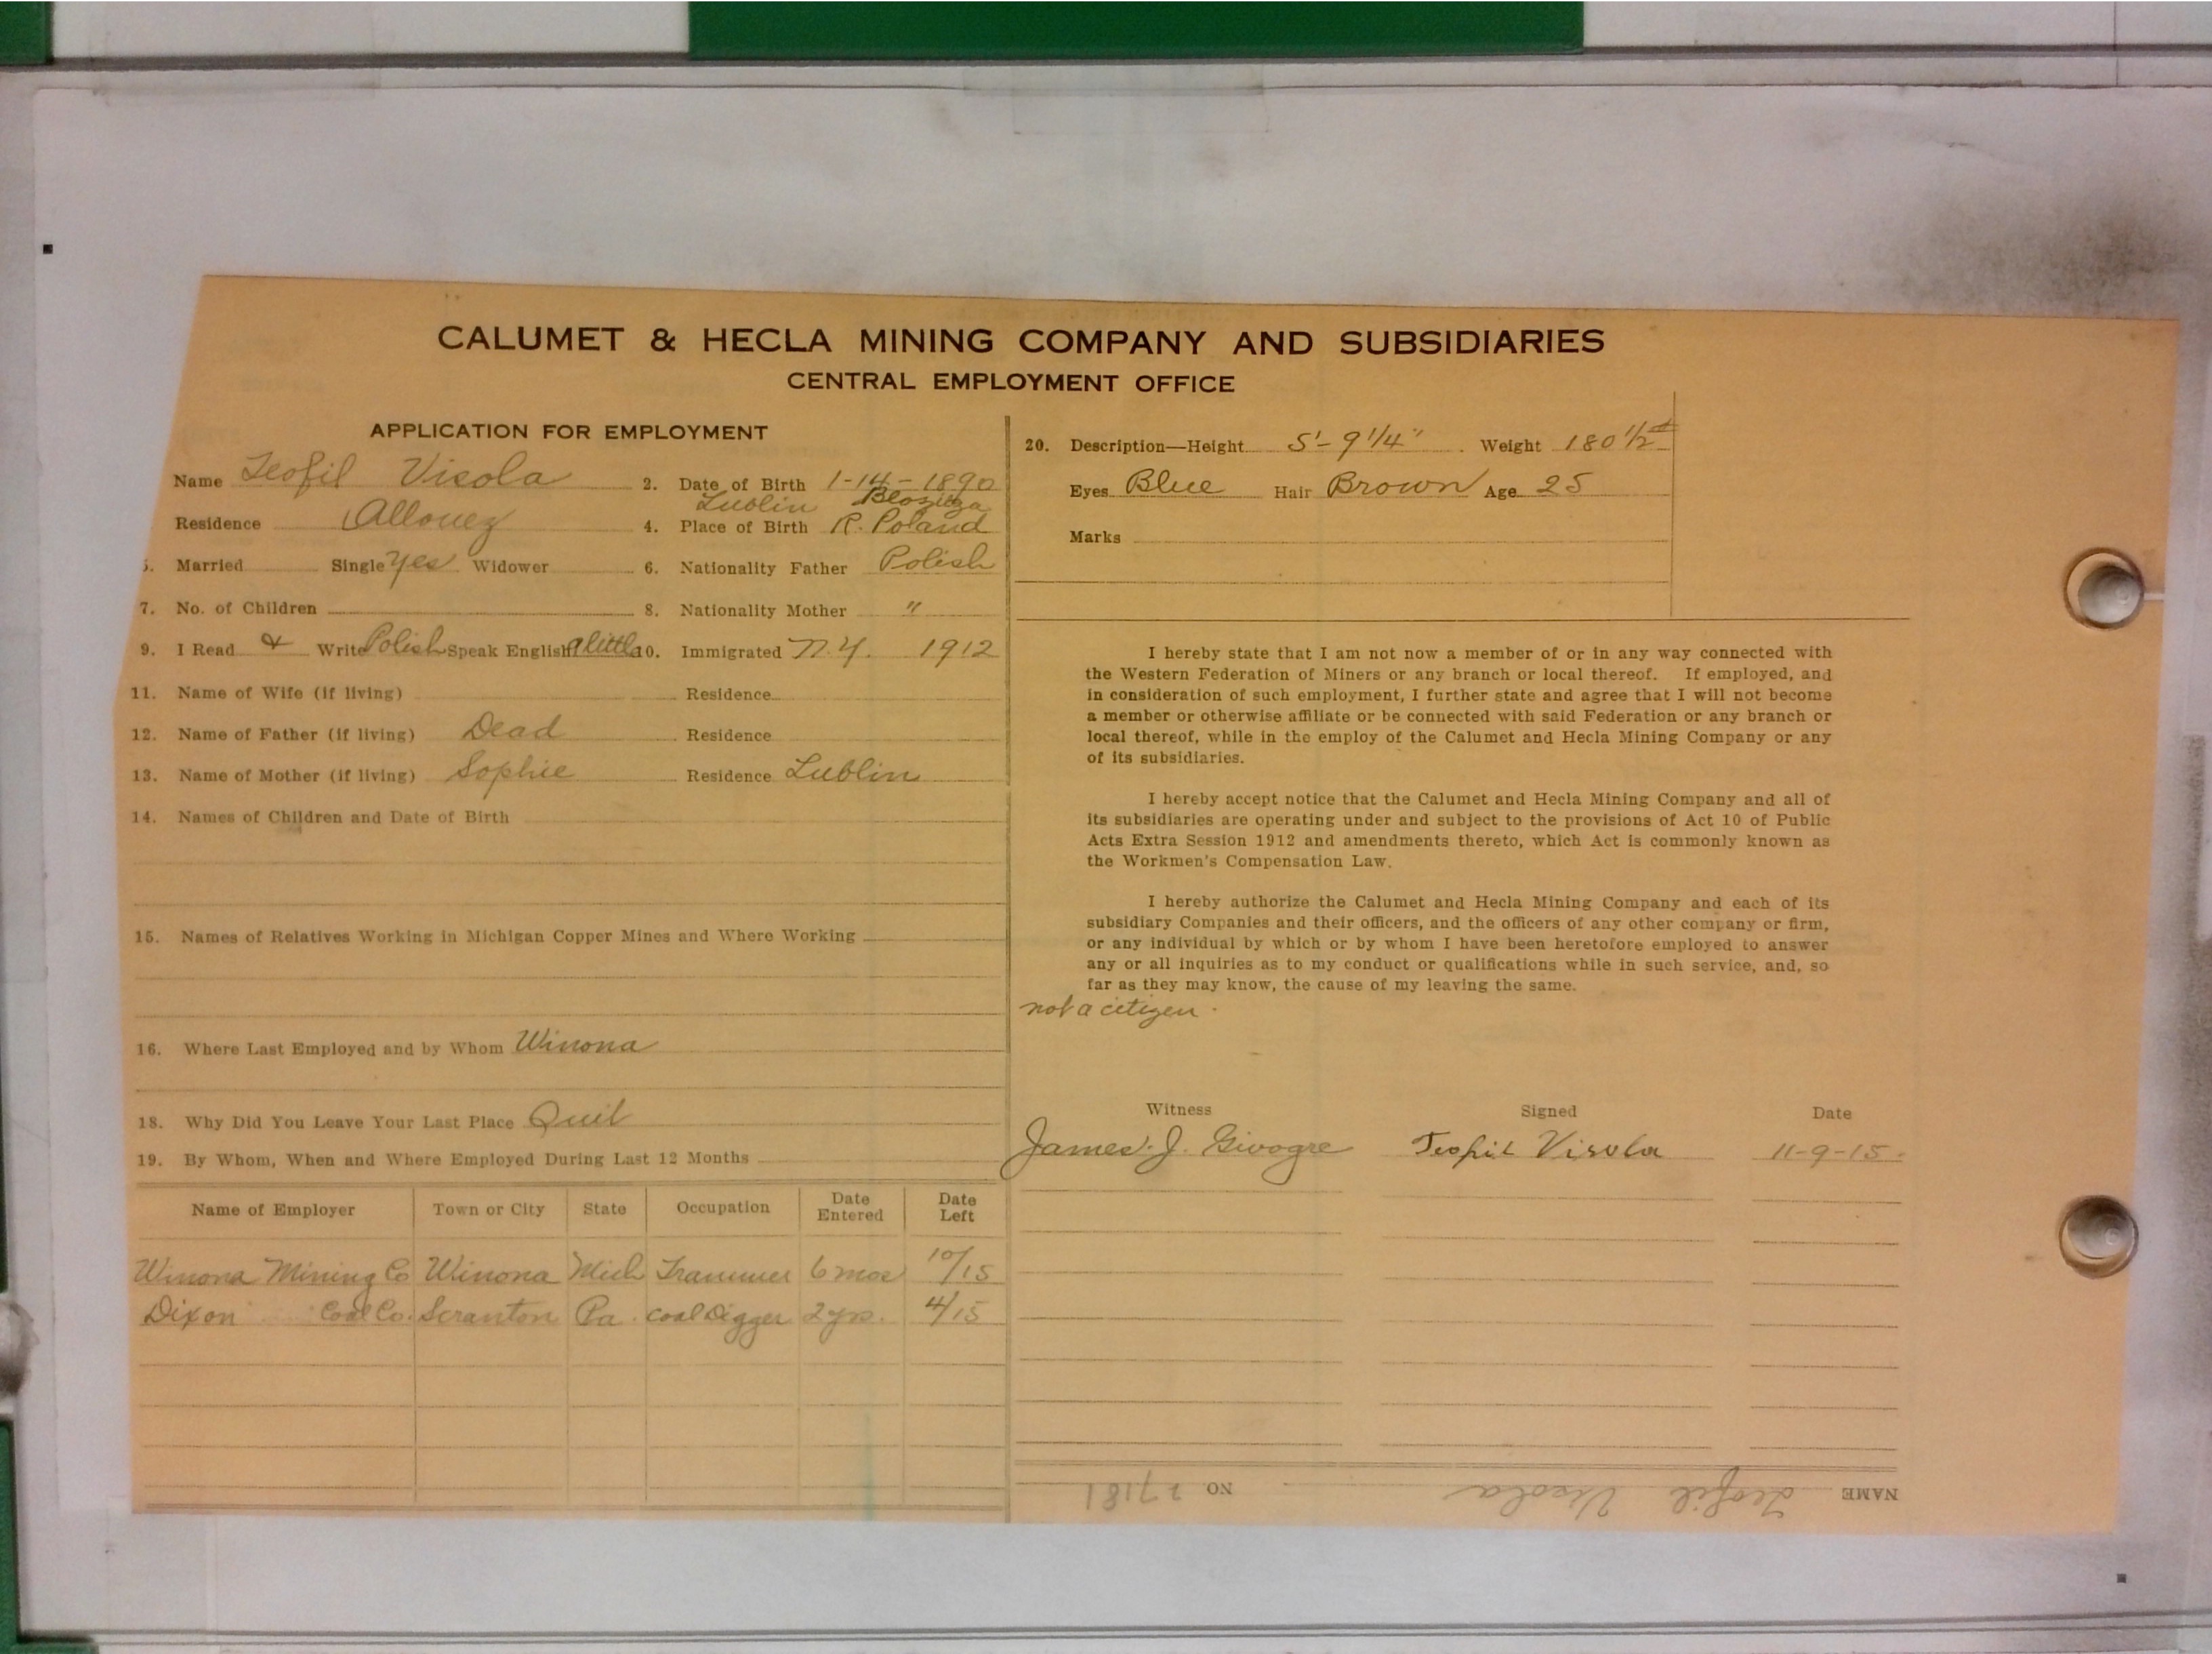 CALUMET & HECLA MINING COMPANY AND SUBSIDIARIES
CENTRAL EMPLOYMENT OFFICE
APPLICATION FOR EMPLOYMENT
Name Teofil Visola
2. Date of Birth 1-14-1890
Residence Allouez
Lublin
4. Place of Birth R. Poland
5. Married Single yes Widower
6. Nationality Father Polish
7. No. of Children
8. Nationality Mother "
9. I Read & Write Polish Speak English a little
10. Immigrated N.Y. 1912
11. Name of Wife (if living) Residence
12. Name of Father (if living) Dead Residence
13. Name of Mother (if living) Sophie Residence Lublin
14. Names of Children and Date of Birth
15. Names of Relatives Working in Michigan Copper Mines and Where Working
16. Where Last Employed and by Whom Winona
18. Why Did You Leave Your Last Place Quit
19. By Whom, When and Where Employed During Last 12 Months
Name of Employer Town or City State Occupation Date Entered Date Left
Winona Mining Co Winona Mich Trammer 6 mos 10/15
Dixon Coal Co. Scranton Pa. Coal Digger 2 yrs. 4/15
20. Description—Height 5'-9 1/4" Weight 180 1/2 #
Eyes Blue Hair Brown Age 25
Marks
I hereby state that I am not now a member of or in any way connected with
the Western Federation of Miners or any branch or local thereof. If employed, and
in consideration of such employment, I further state and agree that I will not become
a member or otherwise affiliate or be connected with said Federation or any branch or
local thereof, while in the employ of the Calumet and Hecla Mining Company or any
of its subsidiaries.
I hereby accept notice that the Calumet and Hecla Mining Company and all of
its subsidiaries are operating under and subject to the provisions of Act 10 of Public
Acts Extra Session 1912 and amendments thereto, which Act is commonly known as
the Workmen's Compensation Law.
I hereby authorize the Calumet and Hecla Mining Company and each of its
subsidiary Companies and their officers, and the officers of any other company or firm,
or any individual by which or by whom I have been heretofore employed to answer
any or all inquiries as to my conduct or qualifications while in such service, and, so
far as they may know, the cause of my leaving the same.
not a citizen.
Witness Signed Date
James J. Givogre Teofil Visola 11-9-15.
NAME Teofil Visola NO 27181